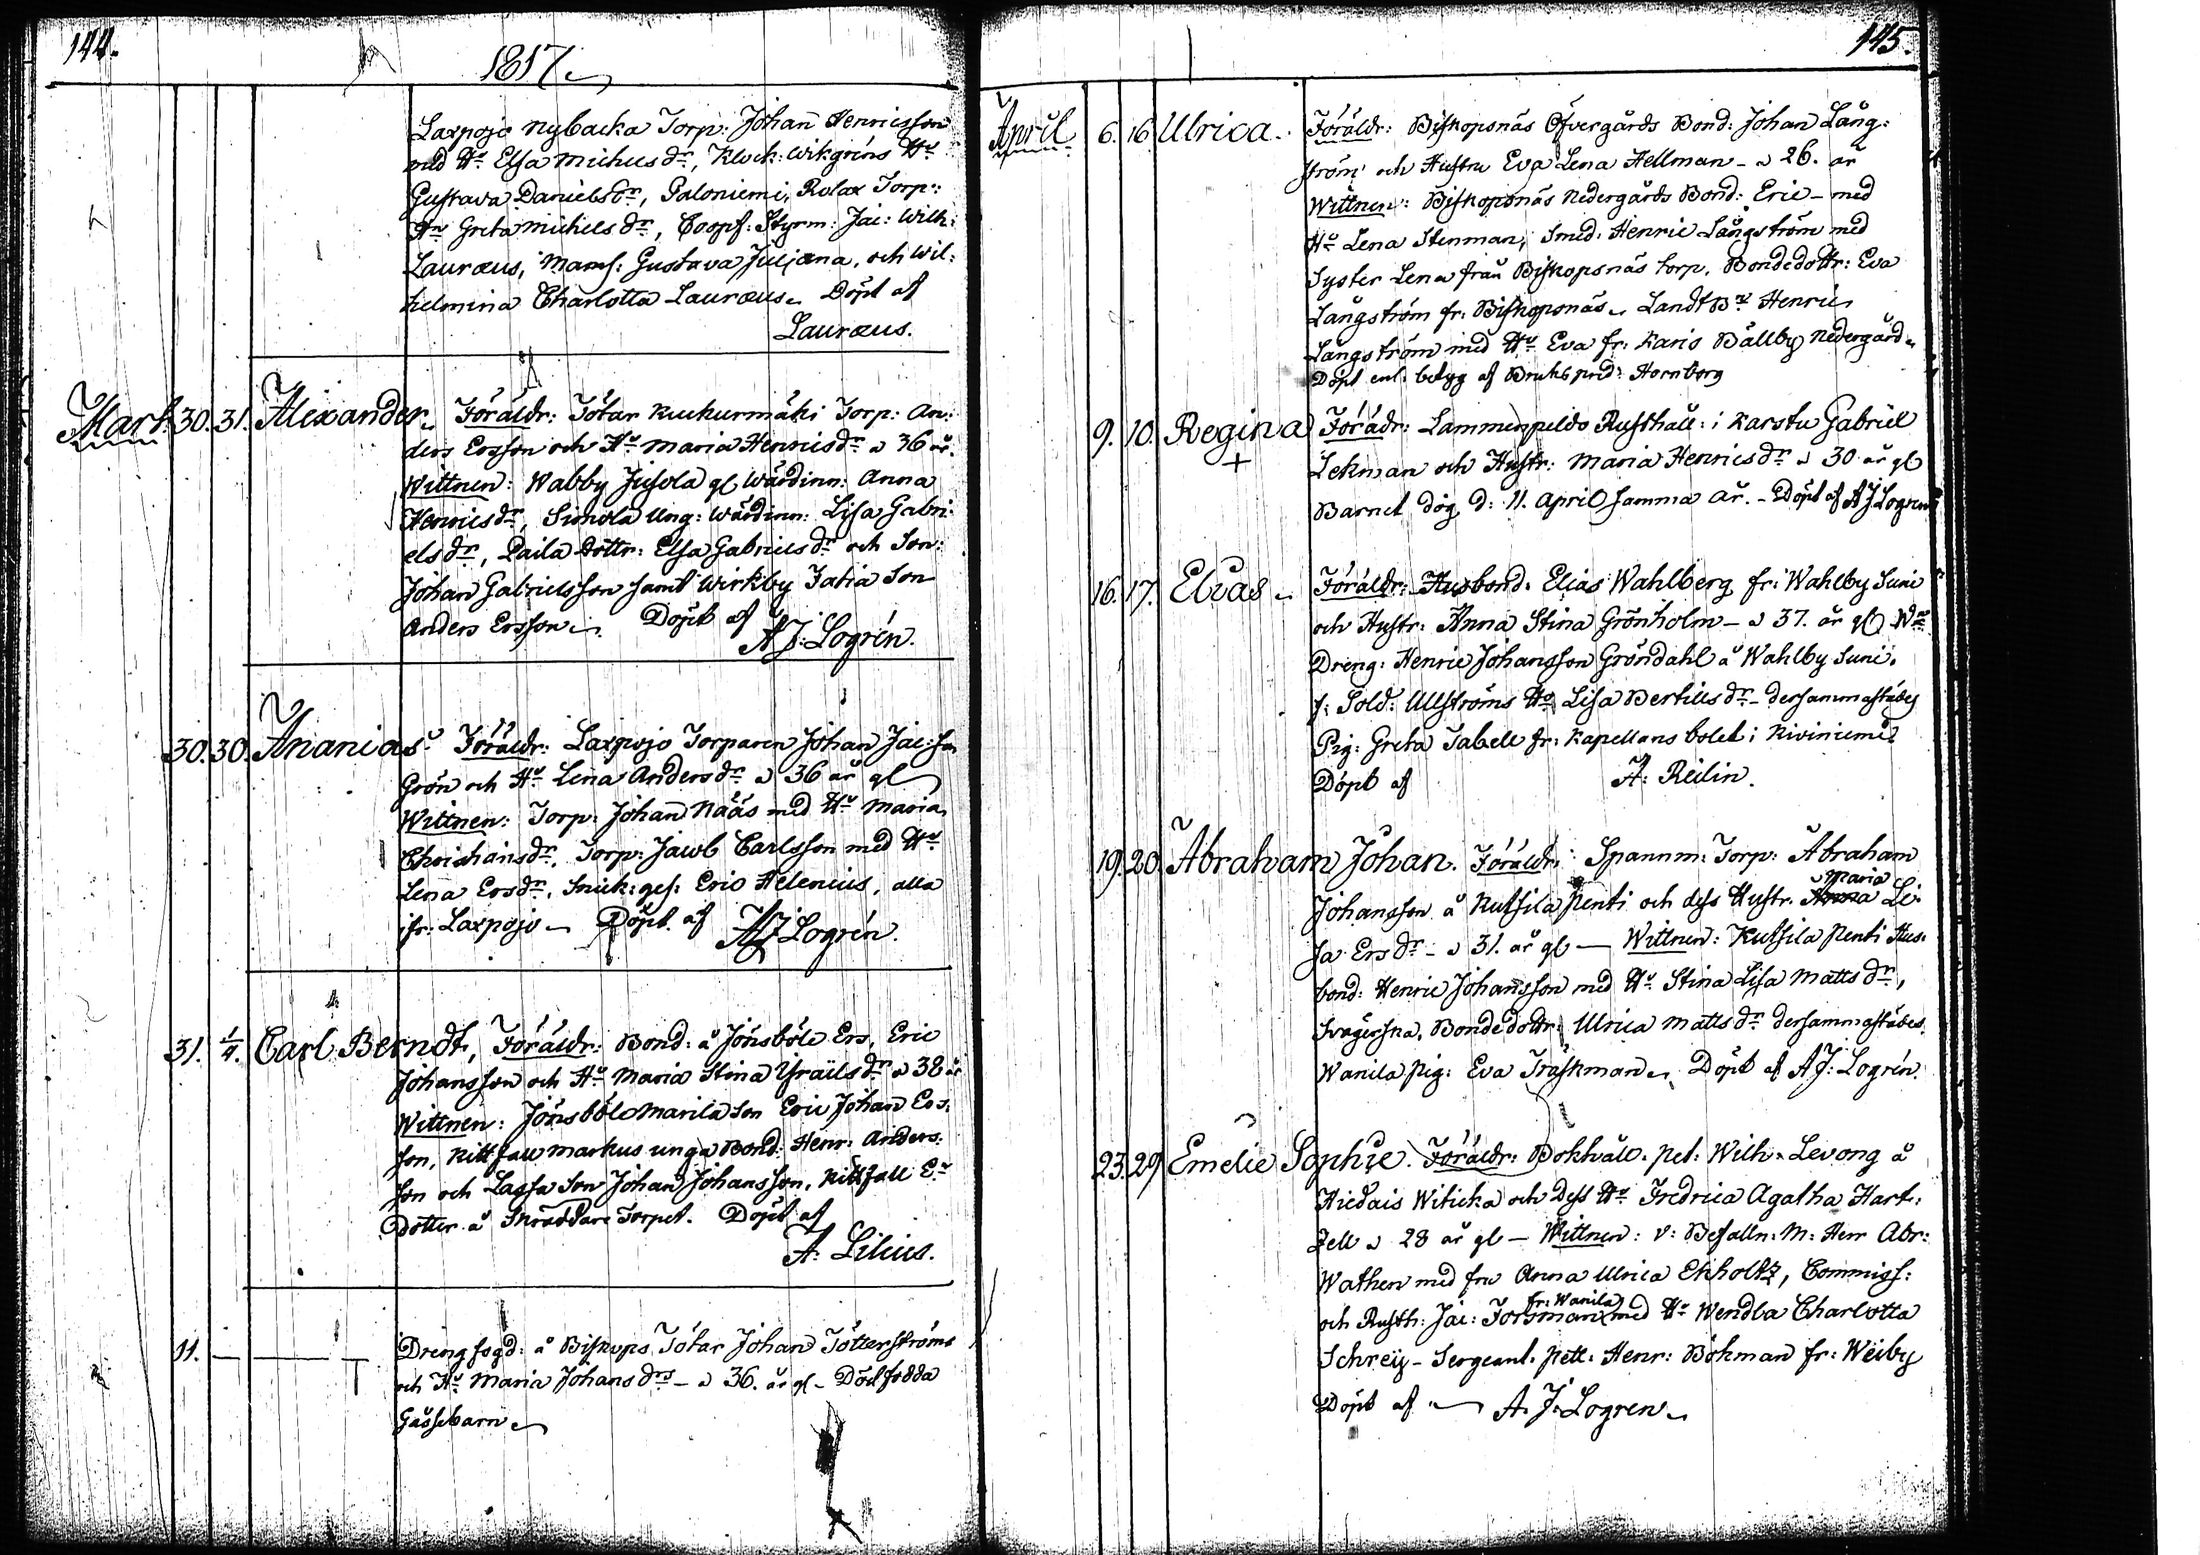 144.
1817.
Laxpojo Nybacka Torp: Johan Henricsson
med Hu Elsa Michels dr, Klock: Wikgréns Hu
Gustava Daniels dr, Paloniemi, Rolax Torp:
Hu Greta Michels dr, Styrm: Jac: Wilh:
Lauræus, Mams: Gustava Juliana, och Wil:
helmina Charlotta Lauræus. Döpt af
Lauræus.
Mart. 30. 31. Alexander. Föräldr: Tötar Kuckurmäki Torp: An:
ders Ersson och Hu Maria Henrics dr a 36 år.
Wittnen: Wabby Jusola gl Wärdinn: Anna
Henrics dr, Simola Ung: Wärdinn: Lisa Gabri:
els dr, Paila Dottr: Elsa Gabriels dr och Son:
Johan Gabrielsson samt Wirkby Jatia Son
Anders Ersson. Döpt af
A J: Logrén.
30. 30. Ananias. Föräldr: Laxpojo Torparen Johan Jac:son
Grön och Hu Lena Anders dr a 36 år gl
Wittnen: Torp: Johan Nääs med Hu Maria
Christians dr, Torp: Jacob Carlsson med Hu
Lena Ers dr, Snick: ges: Eric Helenius, alla
fr: Laxpojo. Döpt af A J Logrén.
31. 1/4. Carl Berndt, Föräldr: Bond: å Jönsböle Ers, Eric
Johansson och Hu Maria Stina Israils dr a 38 år
Wittnen: Jönsböle Marila Son Eric Johan Ers:
son, Kittfall Markus unga Bond: Henr: Anders:
son och Lassa Son Johan Johansson, Kittfall
Dotter å Skräddare Torpet. Döpt af
A. Lilius.
11. Drengfogd: å Biskops Tötar Johan Tötterströms
och Hu Maria Johans drs a 36. år gl. Dödfödda
Gåssebarn
145.
April 6. 16 Ulrica. Föräldr: Biskopsnäs Öfvergårds Bond: Johan Lång:
ström och Hustru Eva Lena Hellman a 26. år
Wittnen: Biskopsnäs Nedergårds Bond: Eric med
Hu Lena Stenman, Smed: Henric Långström med
Syster Lena från Biskopsnäs torp. Bondedottr: Eva
Långström fr: Biskopsnäs. Landtbr Henric
Långström med Hu Eva fr: Karis Bällby Nedergård
Döpt enl. betyg af Bruks pred: Hornborg
9. 10. Regina Föräldr: Lammenpeldo Rusthåll: i Karstu Gabriel
Lekman och Hustr: Maria Henrics dr a 30 år gl
Barnet dög d: 11. April samma år. Döpt af A J Logrén
16. 17. Elias Föräldr: Husbond: Elias Wahlberg fr: Wahlby Suni
och Hustr: Anna Stina Grönholm a 37. år gl
Dreng: Henric Johansson Gröndahl å Wahlby Suni.
f: Sold: Ullströms Hu Lisa Bertills dr dersammastädes
Pig: Greta Tabell fr: Kapellans bolet i Kiviniemi
Döpt af A: Reilin.
19. 20. Abraham Johan. Föräldr: Spannm: Torp: Abraham
Maria
Johansson å Kutsila Penti och dess Hustr. Anna Li:
sa Ers dr a 31. år gl Wittnen: Kutsila Penti Hus:
bond: Henric Johansson med Hu Stina Lisa Matts dr,
Svägerska, Bondedottr: Ulrica Matts dr dersammastädes.
Wanila Pig: Eva Träskman. Döpt af A J: Logrén.
23. 29 Emelie Sophie. Föräldr: Bokhåll. Pet: Wilh: Levong å
Hiedais Witicka och Dess Hu Fredrica Agatha Hart:
zell a 28 år gl Wittnen: v: Befalln: M: Herr Abr:
Wathen med fru Anna Ulrica Ekholtz, Commiss:
fr: Wanila
och Rusth: Jac: Forsman med Hu Wendla Charlotta
Schreij Sergeant. Pett: Henr: Bökman fr: Weiby
Döpt af A. J: Logren